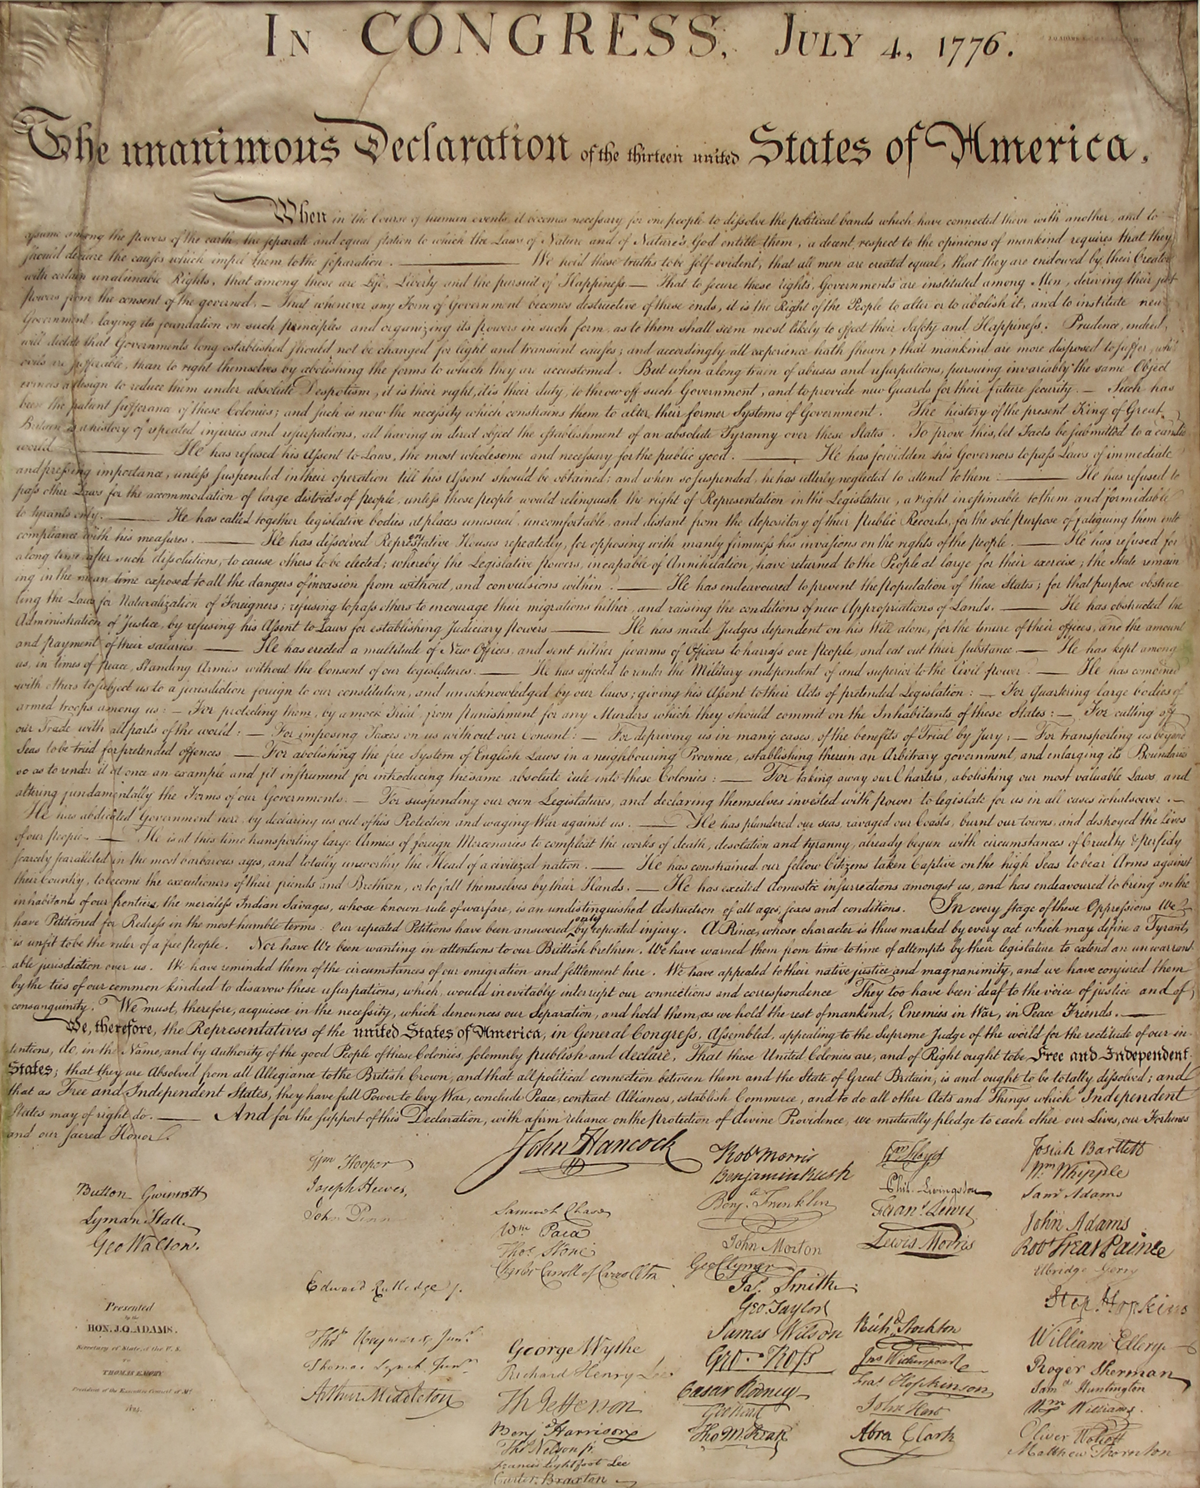 IN CONGRESS, JULY 4, 1776.
The unanimous Declaration of the thirteen united States of America,
When in the Course of human events, it becomes necessary for one people to dissolve the political bands which have connected them with another, and to
assume among the powers of the earth, the separate and equal station to which the Laws of Nature and of Nature's God entitle them, a decent respect to the opinions of mankind requires that they
should declare the causes which impel them to the separation. — We hold these truths to be self-evident, that all men are created equal, that they are endowed by their Creator
with certain unalienable Rights, that among these are Life, Liberty and the pursuit of Happiness — That to secure these rights, Governments are instituted among Men, deriving their just
powers from the consent of the governed, — That whenever any Form of Government becomes destructive of these ends, it is the Right of the People to alter or to abolish it, and to institute new
Government, laying its foundation on such principles and organizing its powers in such form, as to them shall seem most likely to effect their Safety and Happiness. Prudence, indeed,
will dictate that Governments long established should not be changed for light and transient causes; and accordingly all experience hath shewn, that mankind are more disposed to suffer, while
evils are sufferable, than to right themselves by abolishing the forms to which they are accustomed. But when a long train of abuses and usurpations, pursuing invariably the same Object
evinces a design to reduce them under absolute Despotism, it is their right, it is their duty, to throw off such Government, and to provide new Guards for their future security. — Such has
been the patient sufferance of these Colonies; and such is now the necessity which constrains them to alter their former Systems of Government. The history of the present King of Great
Britain is a history of repeated injuries and usurpations, all having in direct object the establishment of an absolute Tyranny over these States. To prove this, let Facts be submitted to a candid
world. — He has refused his Assent to Laws, the most wholesome and necessary for the public good. — He has forbidden his Governors to pass Laws of immediate
and pressing importance, unless suspended in their operation till his Assent should be obtained; and when so suspended, he has utterly neglected to attend to them. — He has refused to
pass other Laws for the accommodation of large districts of people, unless those people would relinquish the right of Representation in the Legislature, a right inestimable to them and formidable
to tyrants only. — He has called together legislative bodies at places unusual, uncomfortable, and distant from the depository of their Public Records, for the sole purpose of fatiguing them into
compliance with his measures. — He has dissolved Representative Houses repeatedly, for opposing with manly firmness his invasions on the rights of the people. — He has refused for
a long time, after such dissolutions, to cause others to be elected; whereby the Legislative powers, incapable of Annihilation, have returned to the People at large for their exercise; the State remain
ing in the mean time exposed to all the dangers of invasion from without, and convulsions within. — He has endeavoured to prevent the population of these States; for that purpose obstruc
ting the Laws for Naturalization of Foreigners; refusing to pass others to encourage their migrations hither, and raising the conditions of new Appropriations of Lands. — He has obstructed the
Administration of Justice, by refusing his Assent to Laws for establishing Judiciary powers. — He has made Judges dependent on his Will alone, for the tenure of their offices, and the amount
and payment of their salaries. — He has erected a multitude of New Offices, and sent hither swarms of Officers to harrass our people, and eat out their substance. — He has kept among
us, in times of peace, Standing Armies without the Consent of our legislatures. — He has affected to render the Military independent of and superior to the Civil power. — He has combined
with others to subject us to a jurisdiction foreign to our constitution, and unacknowledged by our laws; giving his Assent to their Acts of pretended Legislation: — For Quartering large bodies of
armed troops among us: — For protecting them, by a mock Trial, from punishment for any Murders which they should commit on the Inhabitants of these States: — For cutting off
our Trade with all parts of the world: — For imposing Taxes on us without our Consent: — For depriving us in many cases, of the benefits of Trial by Jury: — For transporting us beyond
Seas to be tried for pretended offences — For abolishing the free System of English Laws in a neighbouring Province, establishing therein an Arbitrary government, and enlarging its Boundaries
so as to render it at once an example and fit instrument for introducing the same absolute rule into these Colonies: — For taking away our Charters, abolishing our most valuable Laws, and
altering fundamentally the Forms of our Governments: — For suspending our own Legislatures, and declaring themselves invested with power to legislate for us in all cases whatsoever. —
He has abdicated Government here, by declaring us out of his Protection and waging War against us. — He has plundered our seas, ravaged our Coasts, burnt our towns, and destroyed the lives
of our people. — He is at this time transporting large Armies of foreign Mercenaries to compleat the works of death, desolation and tyranny, already begun with circumstances of Cruelty & perfidy
scarcely paralleled in the most barbarous ages, and totally unworthy the Head of a civilized nation. — He has constrained our fellow Citizens taken Captive on the high Seas to bear Arms against
their Country, to become the executioners of their friends and Brethren, or to fall themselves by their Hands. — He has excited domestic insurrections amongst us, and has endeavoured to bring on the
inhabitants of our frontiers, the merciless Indian Savages, whose known rule of warfare, is an undistinguished destruction of all ages, sexes and conditions. In every stage of these Oppressions We
have Petitioned for Redress in the most humble terms: Our repeated Petitions have been answered only by repeated injury. A Prince, whose character is thus marked by every act which may define a Tyrant,
is unfit to be the ruler of a free people. Nor have We been wanting in attentions to our Brittish brethren. We have warned them from time to time of attempts by their legislature to extend an unwarrant
able jurisdiction over us. We have reminded them of the circumstances of our emigration and settlement here. We have appealed to their native justice and magnanimity, and we have conjured them
by the ties of our common kindred to disavow these usurpations, which, would inevitably interrupt our connections and correspondence. They too have been deaf to the voice of justice and of
consanguinity. We must, therefore, acquiesce in the necessity, which denounces our Separation, and hold them, as we hold the rest of mankind, Enemies in War, in Peace Friends. —
We, therefore, the Representatives of the united States of America, in General Congress, Assembled, appealing to the Supreme Judge of the world for the rectitude of our in
tentions, do, in the Name, and by Authority of the good People of these Colonies, solemnly publish and declare, That these United Colonies are, and of Right ought to be Free and Independent
States; that they are Absolved from all Allegiance to the British Crown, and that all political connection between them and the State of Great Britain, is and ought to be totally dissolved; and
that as Free and Independent States, they have full Power to levy War, conclude Peace, contract Alliances, establish Commerce, and to do all other Acts and Things which Independent
States may of right do. — And for the support of this Declaration, with a firm reliance on the protection of divine Providence, we mutually pledge to each other our Lives, our Fortunes
and our sacred Honor.
Button Gwinnett
Lyman Hall
Geo Walton.
Presented
by the
HON. J.Q. ADAMS.
Secretary of State of the U.S.
TO
Wm Hooper
Joseph Hewes,
John Penn
Edward Rutledge
Thos Heyward Junr
Thomas Lynch Junr
Arthur Middleton
John Hancock
Samuel Chase
Wm Paca
Thos Stone
Charles Carroll of Carrollton
George Wythe
Richard Henry Lee
Th Jefferson
Benj Harrison
Thos Nelson jr
Francis Lightfoot Lee
Carter Braxton
Robt Morris
Benjamin Rush
Benj. Franklin
John Morton
Geo Clymer
Jas Smith
Geo. Taylor
James Wilson
Geo. Ross
Caesar Rodney
Geo Read
Tho M:Kean
Wm Floyd
Phil. Livingston
Frans Lewis
Lewis Morris
Richd Stockton
Jno Witherspoon
Fras Hopkinson
John Hart
Abra Clark
Josiah Bartlett
Wm Whipple
Saml Adams
John Adams
Robt Treat Paine
Elbridge Gerry
Step. Hopkins
William Ellery
Roger Sherman
Saml Huntington
Wm Williams
Oliver Wolcott
Matthew Thornton